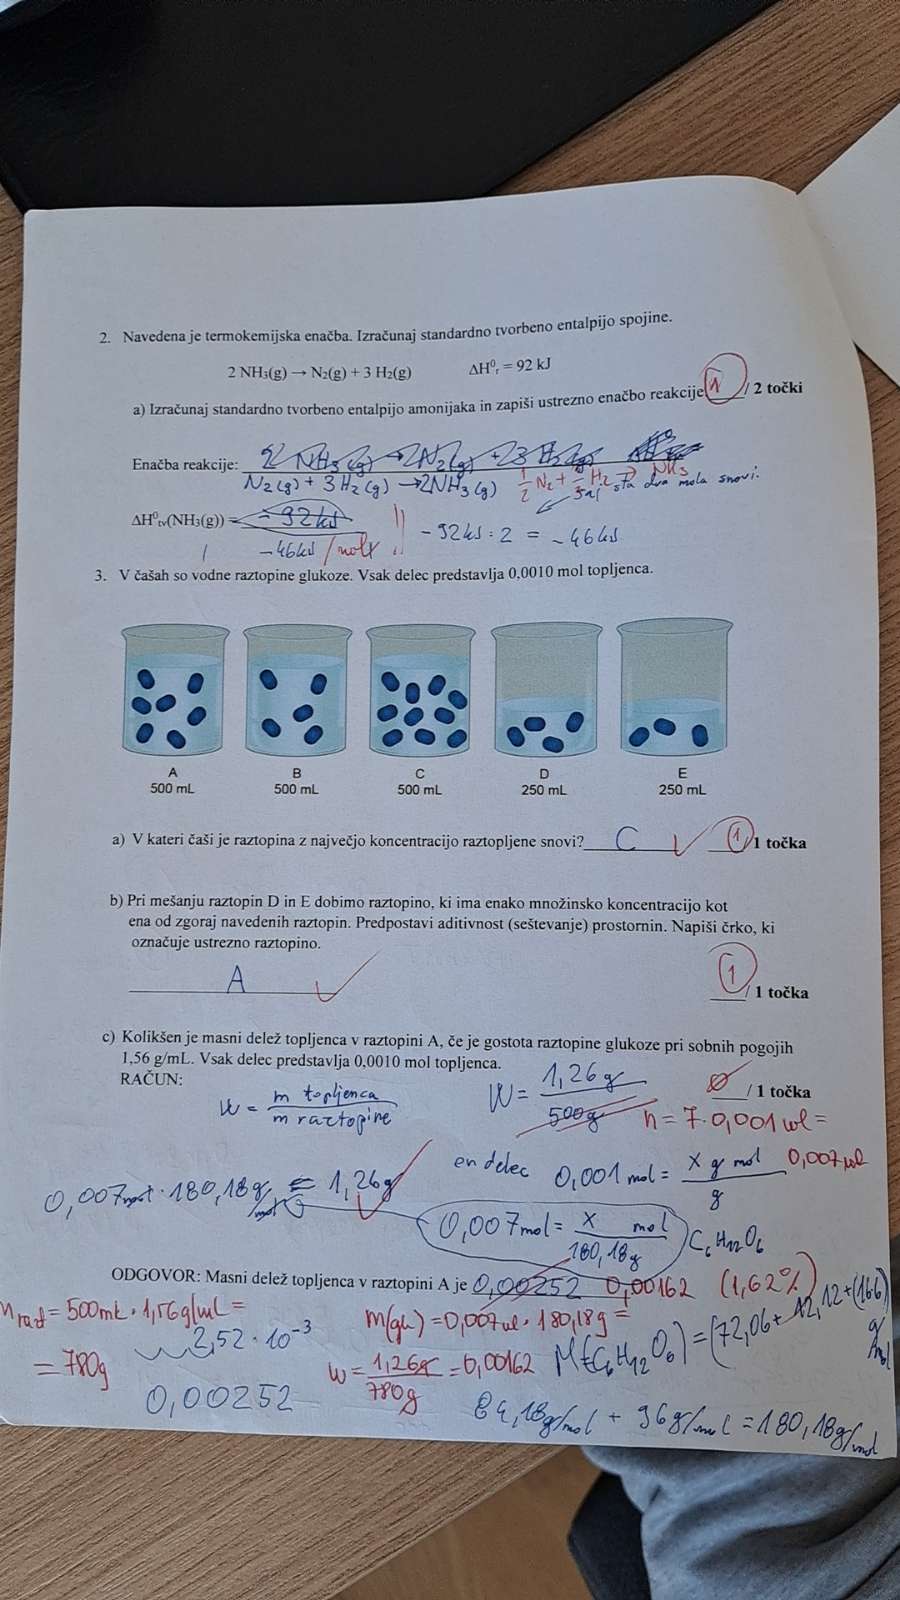 2. Navedena je termokemijska enačba. Izračunaj standardno tvorbeno entalpijo spojine.
2 NH₃(g) → N₂(g) + 3 H₂(g) ΔH⁰ᵣ = 92 kJ
a) Izračunaj standardno tvorbeno entalpijo amonijaka in zapiši ustrezno enačbo reakcije. 1 / 2 točki
Enačba reakcije: 2 NH₃(g) → N₂(g) + 3 H₂(g)
N₂(g) + 3 H₂(g) → 2NH₃(g) ½ N₂ + 3/2 H₂ → NH₃
saj sta dva mola snovi.
ΔH⁰tv(NH₃(g)) = -92 kJ -92 kJ : 2 = -46 kJ
-46 kJ /mol
3. V čašah so vodne raztopine glukoze. Vsak delec predstavlja 0,0010 mol topljenca.
A B C D E
500 mL 500 mL 500 mL 250 mL 250 mL
a) V kateri čaši je raztopina z največjo koncentracijo raztopljene snovi? C ✓ 1 / 1 točka
b) Pri mešanju raztopin D in E dobimo raztopino, ki ima enako množinsko koncentracijo kot
ena od zgoraj navedenih raztopin. Predpostavi aditivnost (seštevanje) prostornin. Napiši črko, ki
označuje ustrezno raztopino.
A ✓ 1 / 1 točka
c) Kolikšen je masni delež topljenca v raztopini A, če je gostota raztopine glukoze pri sobnih pogojih
1,56 g/mL. Vsak delec predstavlja 0,0010 mol topljenca.
RAČUN: 0 / 1 točka
w = m topljenca / m raztopine w = 1,26 g / 500 g n = 7 · 0,001 mol =
0,007 mol
en delec 0,001 mol = x g mol / g
0,007 mol · 180,18 g/mol = 1,26 g ✓
0,007 mol = x mol / 180,18 g C₆H₁₂O₆
ODGOVOR: Masni delež topljenca v raztopini A je 0,00252 0,00162 (1,62%)
m razt = 500 mL · 1,56 g/mL = m(gl) = 0,007 mol · 180,18 g =
2,52 · 10⁻³ M(C₆H₁₂O₆) = (72,06 + 12,12 + (16·6) g/mol
= 780 g w = 1,26 g / 780 g = 0,00162
0,00252 84,18 g/mol + 96 g/mol = 180,18 g/mol